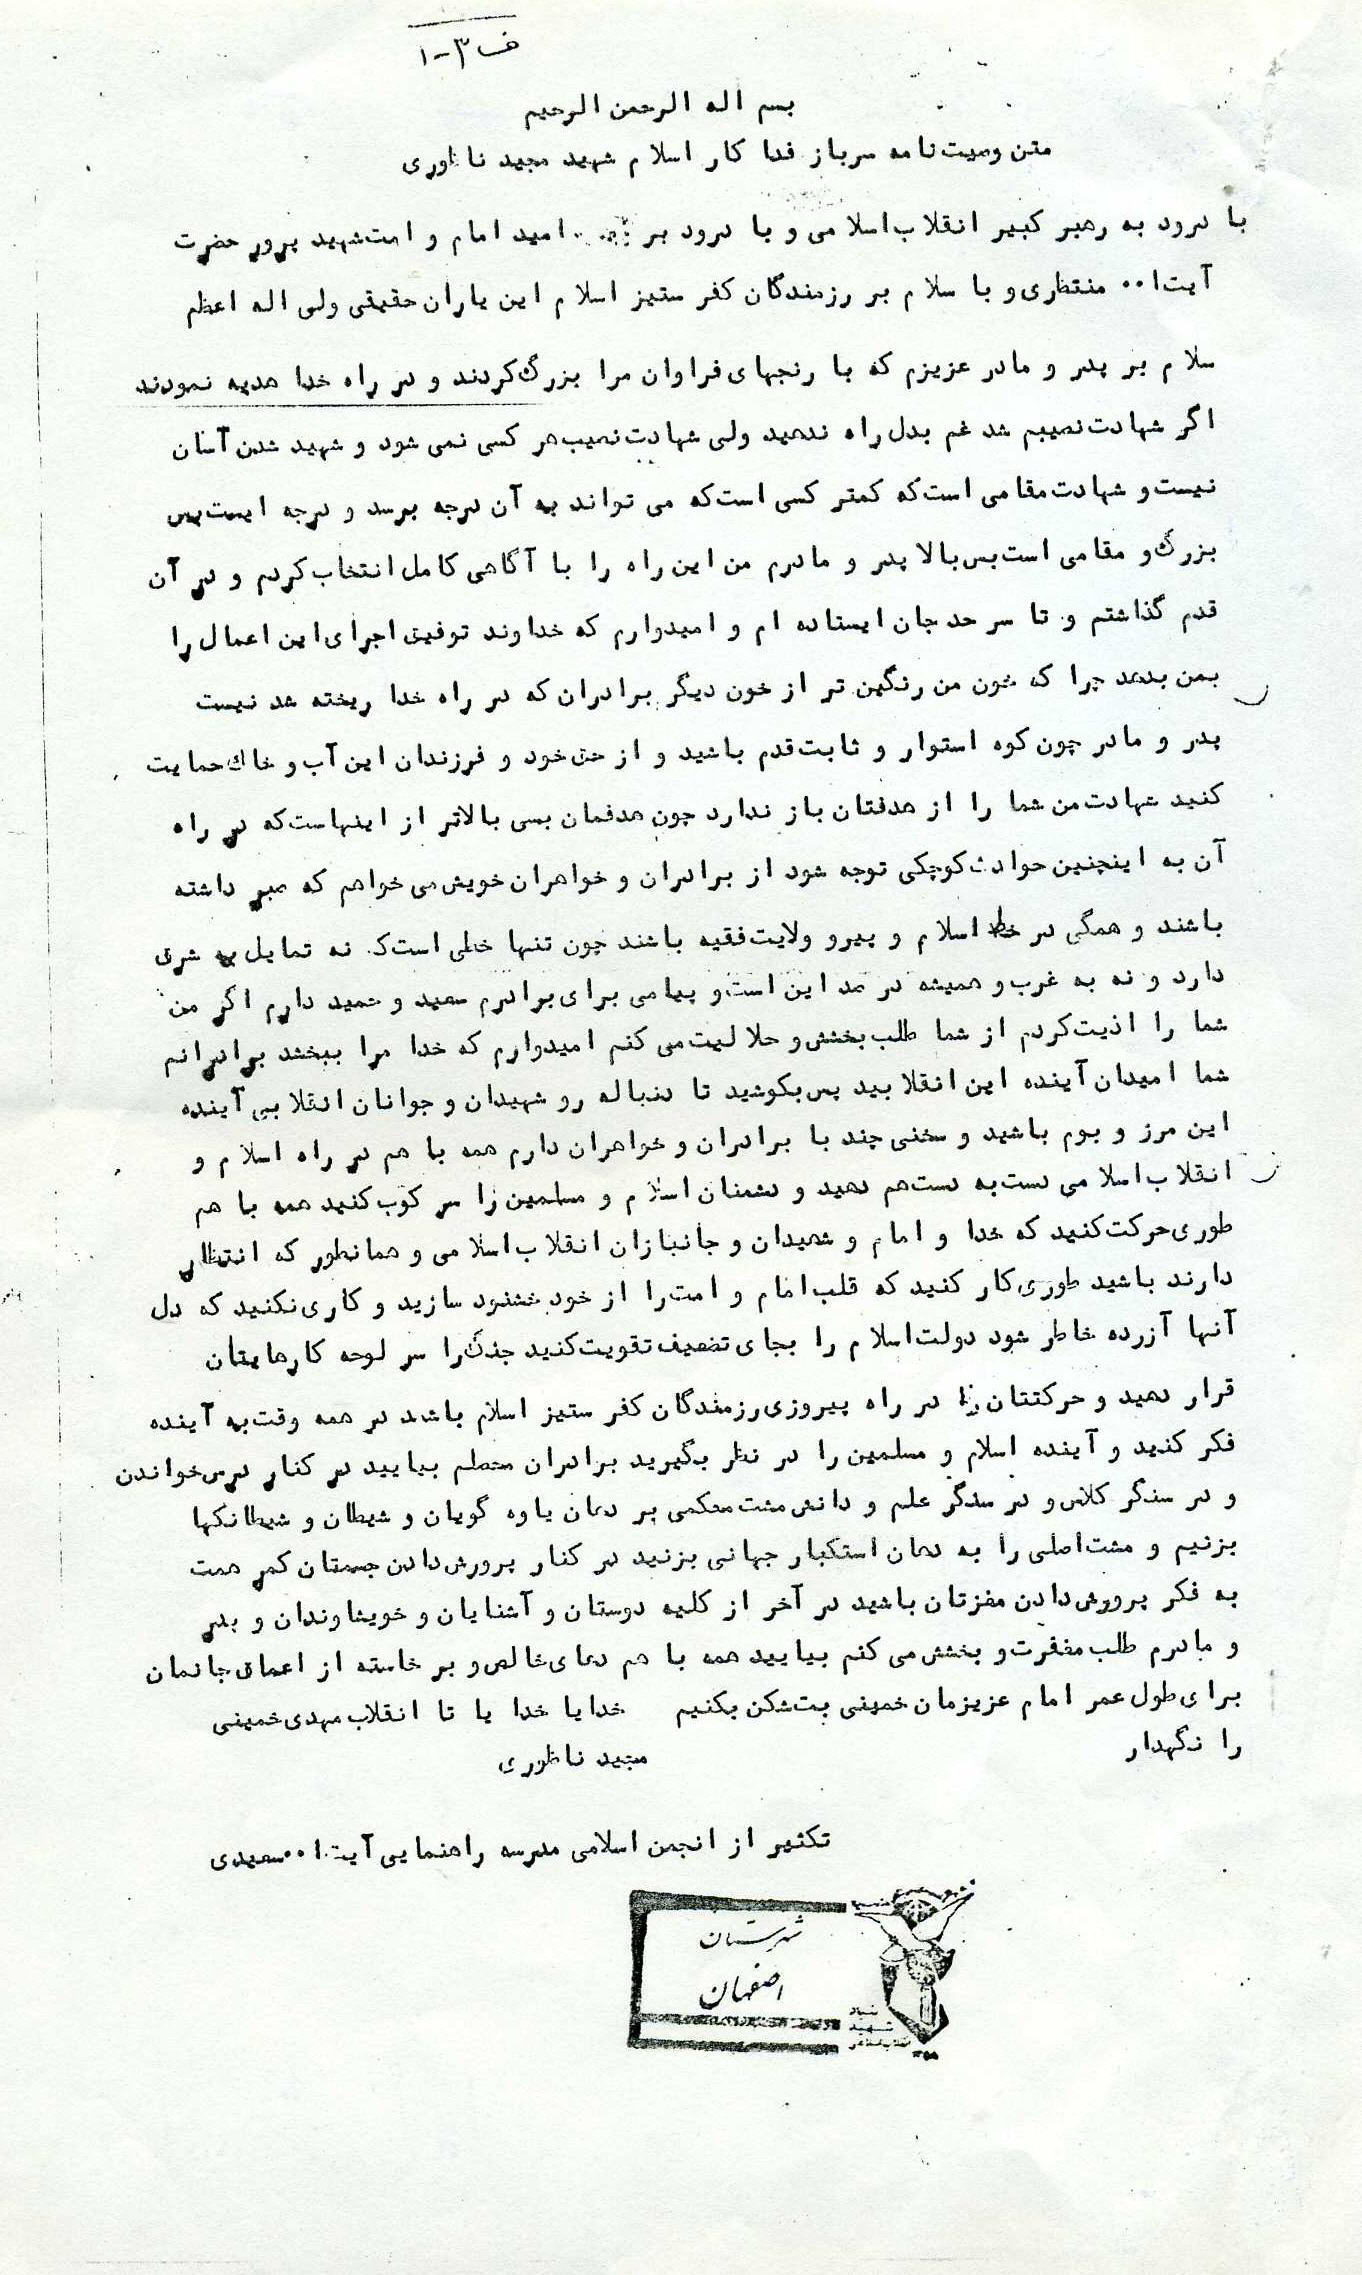 ف ۳-۱
بسم اله الرحمن الرحیم
متن وصیت‌نامه سرباز فدا کار اسلام شهید مجید ناظوری
با درود به رهبر کبیر انقلاب اسلامی و با درود بر امید امام و امت شهید پرور حضرت
آیت‌ا۰۰ منتظری و با سلام بر رزمندگان کفر ستیز اسلام این یاران حقیقی ولی اله اعظم
سلام بر پدر و مادر عزیزم که با رنجهای فراوان مرا بزرگ کردند و در راه خدا هدیه نمودند
اگر شهادت نصیبم شد غم بدل راه ندهید ولی شهادت نصیب هر کسی نمی شود و شهید شدن آسان
نیست و شهادت مقامی است که کمتر کسی است که می تواند به آن درجه برسد و درجه ایست بس
بزرگ و مقامی است بس بالا پدر و مادرم من این راه را با آگاهی کامل انتخاب کردم و در آن
قدم گذاشتم و تا سر حد جان ایستاده ام و امیدوارم که خداوند توفیق اجرای این اعمال را
بمن بدهد چرا که خون من رنگین تر از خون دیگر برادران که در راه خدا ریخته شد نیست
پدر و مادر چون کوه استوار و ثابت قدم باشید و از حق خود و فرزندان این آب و خاک حمایت
کنید شهادت من شما را از هدفتان باز ندارد چون هدفمان بسی بالاتر از اینهاست که در راه
آن به اینچنین حوادث کوچکی توجه شود از برادران و خواهران خویش می خواهم که صبر داشته
باشند و همگی در خط اسلام و پیرو ولایت فقیه باشند چون تنها خطی است که نه تمایل به شرق
دارد و نه به غرب و همیشه در ضد این است و پیامی برای برادرم سعید و حمید دارم اگر من
شما را اذیت کردم از شما طلب بخشش و حلالیت می کنم امیدوارم که خدا مرا ببخشد برادرانم
شما امیدان آینده این انقلابید پس بکوشید تا دنباله رو شهیدان و جوانان انقلابی آینده
این مرز و بوم باشید و سخنی چند با برادران و خواهران دارم همه با هم در راه اسلام و
انقلاب اسلامی دست به دست هم دهید و دشمنان اسلام و مسلمین را سر کوب کنید همه با هم
طوری حرکت کنید که خدا و امام و شهیدان و جانبازان انقلاب اسلامی و همانطور که انتظار
دارند باشید طوری کار کنید که قلب امام و امت را از خود خشنود سازید و کاری نکنید که دل
آنها آزرده خاطر شود دولت اسلام را بجای تضعیف تقویت کنید جنگ را سر لوحه کارهایتان
قرار دهید و حرکتتان را در راه پیروزی رزمندگان کفر ستیز اسلام باشد در همه وقت به آینده
فکر کنید و آینده اسلام و مسلمین را در نظر بگیرید برادران محصلم بیایید در کنار درس خواندن
و در سنگر کلاس و در سنگر علم و دانش مشت محکمی بر دهان یاوه گویان و شیطان و شیطانکها
بزنیم و مشت اصلی را به دهان استکبار جهانی بزنید در کنار پرورش دادن جسمتان کمر همت
به فکر پرورش دادن مغزتان باشید در آخر از کلیه دوستان و آشنایان و خویشاوندان و پدر
و مادرم طلب مغفرت و بخشش می کنم بیایید همه با هم دعای خالص و بر خاسته از اعماق جانمان
برای طول عمر امام عزیزمان خمینی بت شکن بکنیم خدایا خدا یا تا انقلاب مهدی خمینی
را نگهدار
مجید ناظوری
تکثیر از انجمن اسلامی مدرسه راهنمایی آیت ا۰۰ سعیدی
شهرستان
اصفهان
بنیاد
شهید
انقلاب اسلامی